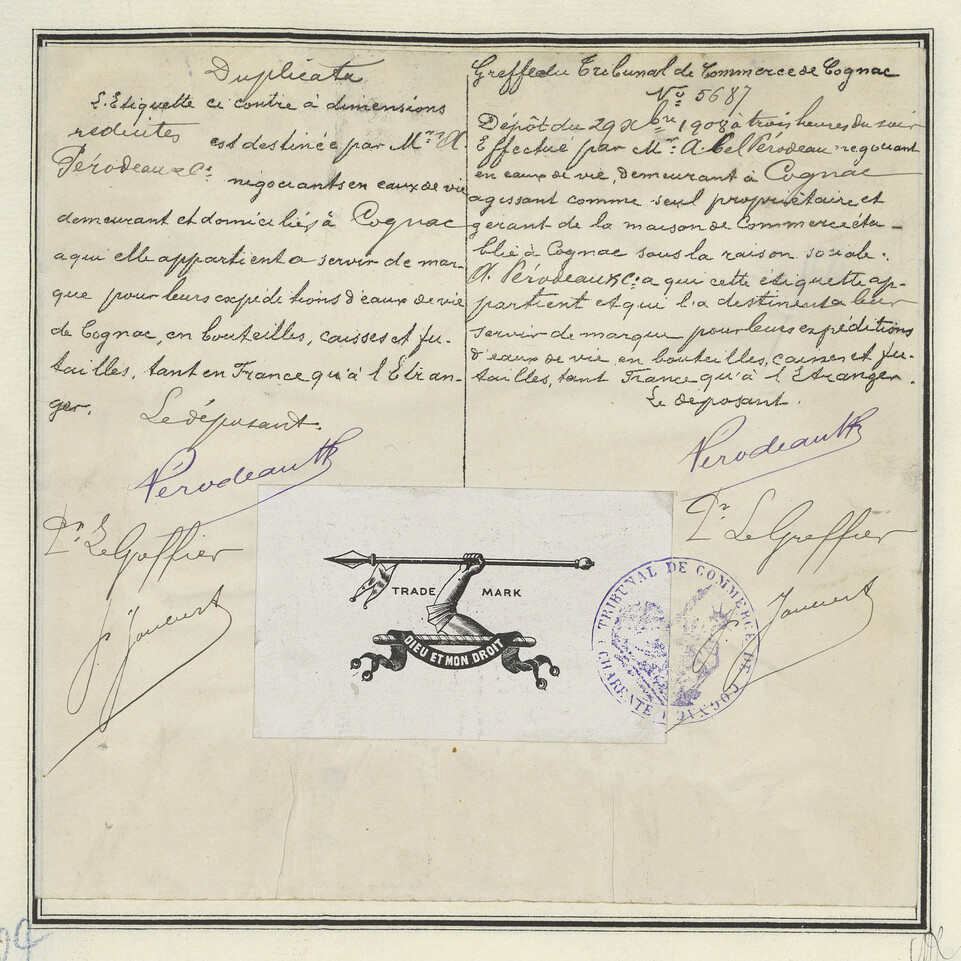 Duplicata
L'Etiquette ci contre à dimensions
reduites
est destinée par Mrs A.
Pérodeau & Cie
négociants en eaux de vie
demeurant et domiciliés à Cognac
a qui elle appartient a servir de mar-
que pour leurs expéditions d'eaux de vie
de Cognac, en bouteilles, caisses et fu-
tailles, tant en France qu'à l'Etran-
ger.
Le déposant.
Pérodeau
Pr Le Greffier
Greffe du Tribunal de Commerce de Cognac
No 5687
Dépôt du 29 Xbre 1908 à trois heures du soir
Effectué par Mr Abel Pérodeau négociant
en eaux de vie, demeurant à Cognac
agissant comme seul propriétaire et
gérant de la maison de Commerce éta-
blie à Cognac sous la raison sociale:
A. Pérodeau & Cie a qui cette étiquette ap-
partient et qui l'a destinent a leur
servir de marque pour leurs expéditions
d'eaux de vie en bouteilles, caisses et fu-
tailles, tant France qu'à l'Etranger.
Le déposant.
Pérodeau
Pr Le Greffier
TRADE MARK
DIEU ET MON DROIT
TRIBUNAL DE COMMERCE DE COGNAC
CHARENTE